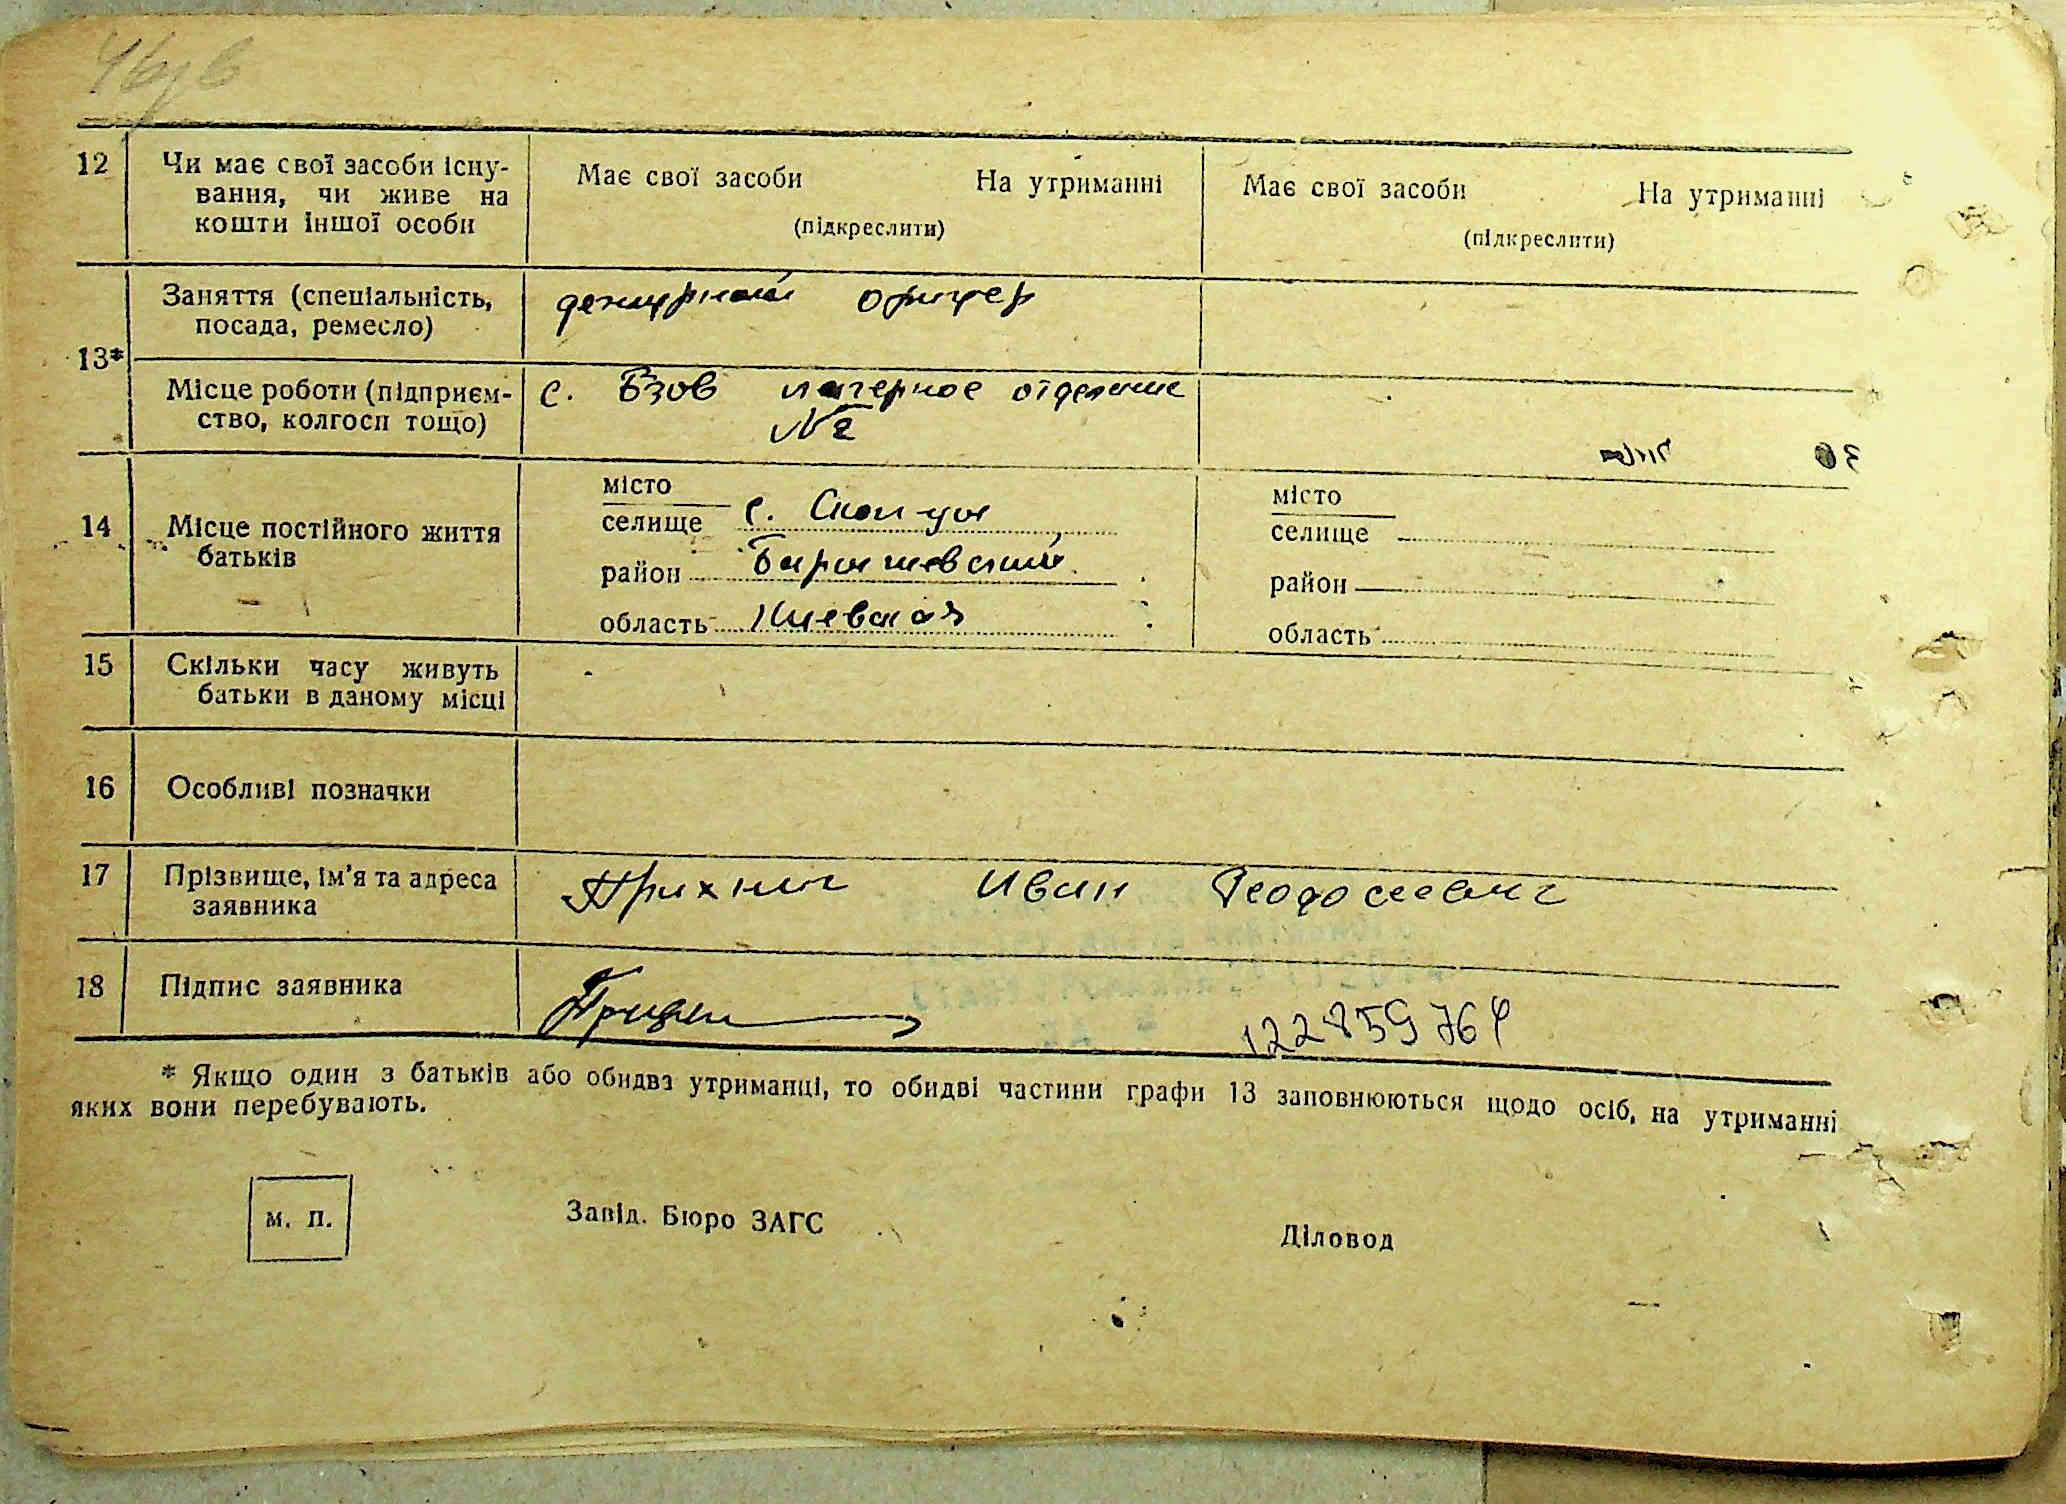 46
12 Чи має свої засоби існу-
вання, чи живе на
кошти іншої особи
Має свої засоби На утриманні
(підкреслити)
Має свої засоби На утриманні
(підкреслити)
13*
Заняття (спеціальність,
посада, ремесло)
дежурный офицер
Місце роботи (підприєм-
ство, колгосп тощо)
с. Бзов лагерное отделение
№ 2
14 Місце постійного життя
батьків
місто
селище с. Скопцы
район Барышевский
область Киевская
місто
селище
район
область
15 Скільки часу живуть
батьки в даному місці
16 Особливі позначки
17 Прізвище, ім'я та адреса
заявника
Иван Феодосиевич
18 Підпис заявника
* Якщо один з батьків або обидва утриманці, то обидві частини графи 13 заповнюються щодо осіб, на утриманні
яких вони перебувають.
м. п.
Завід. Бюро ЗАГС
Діловод